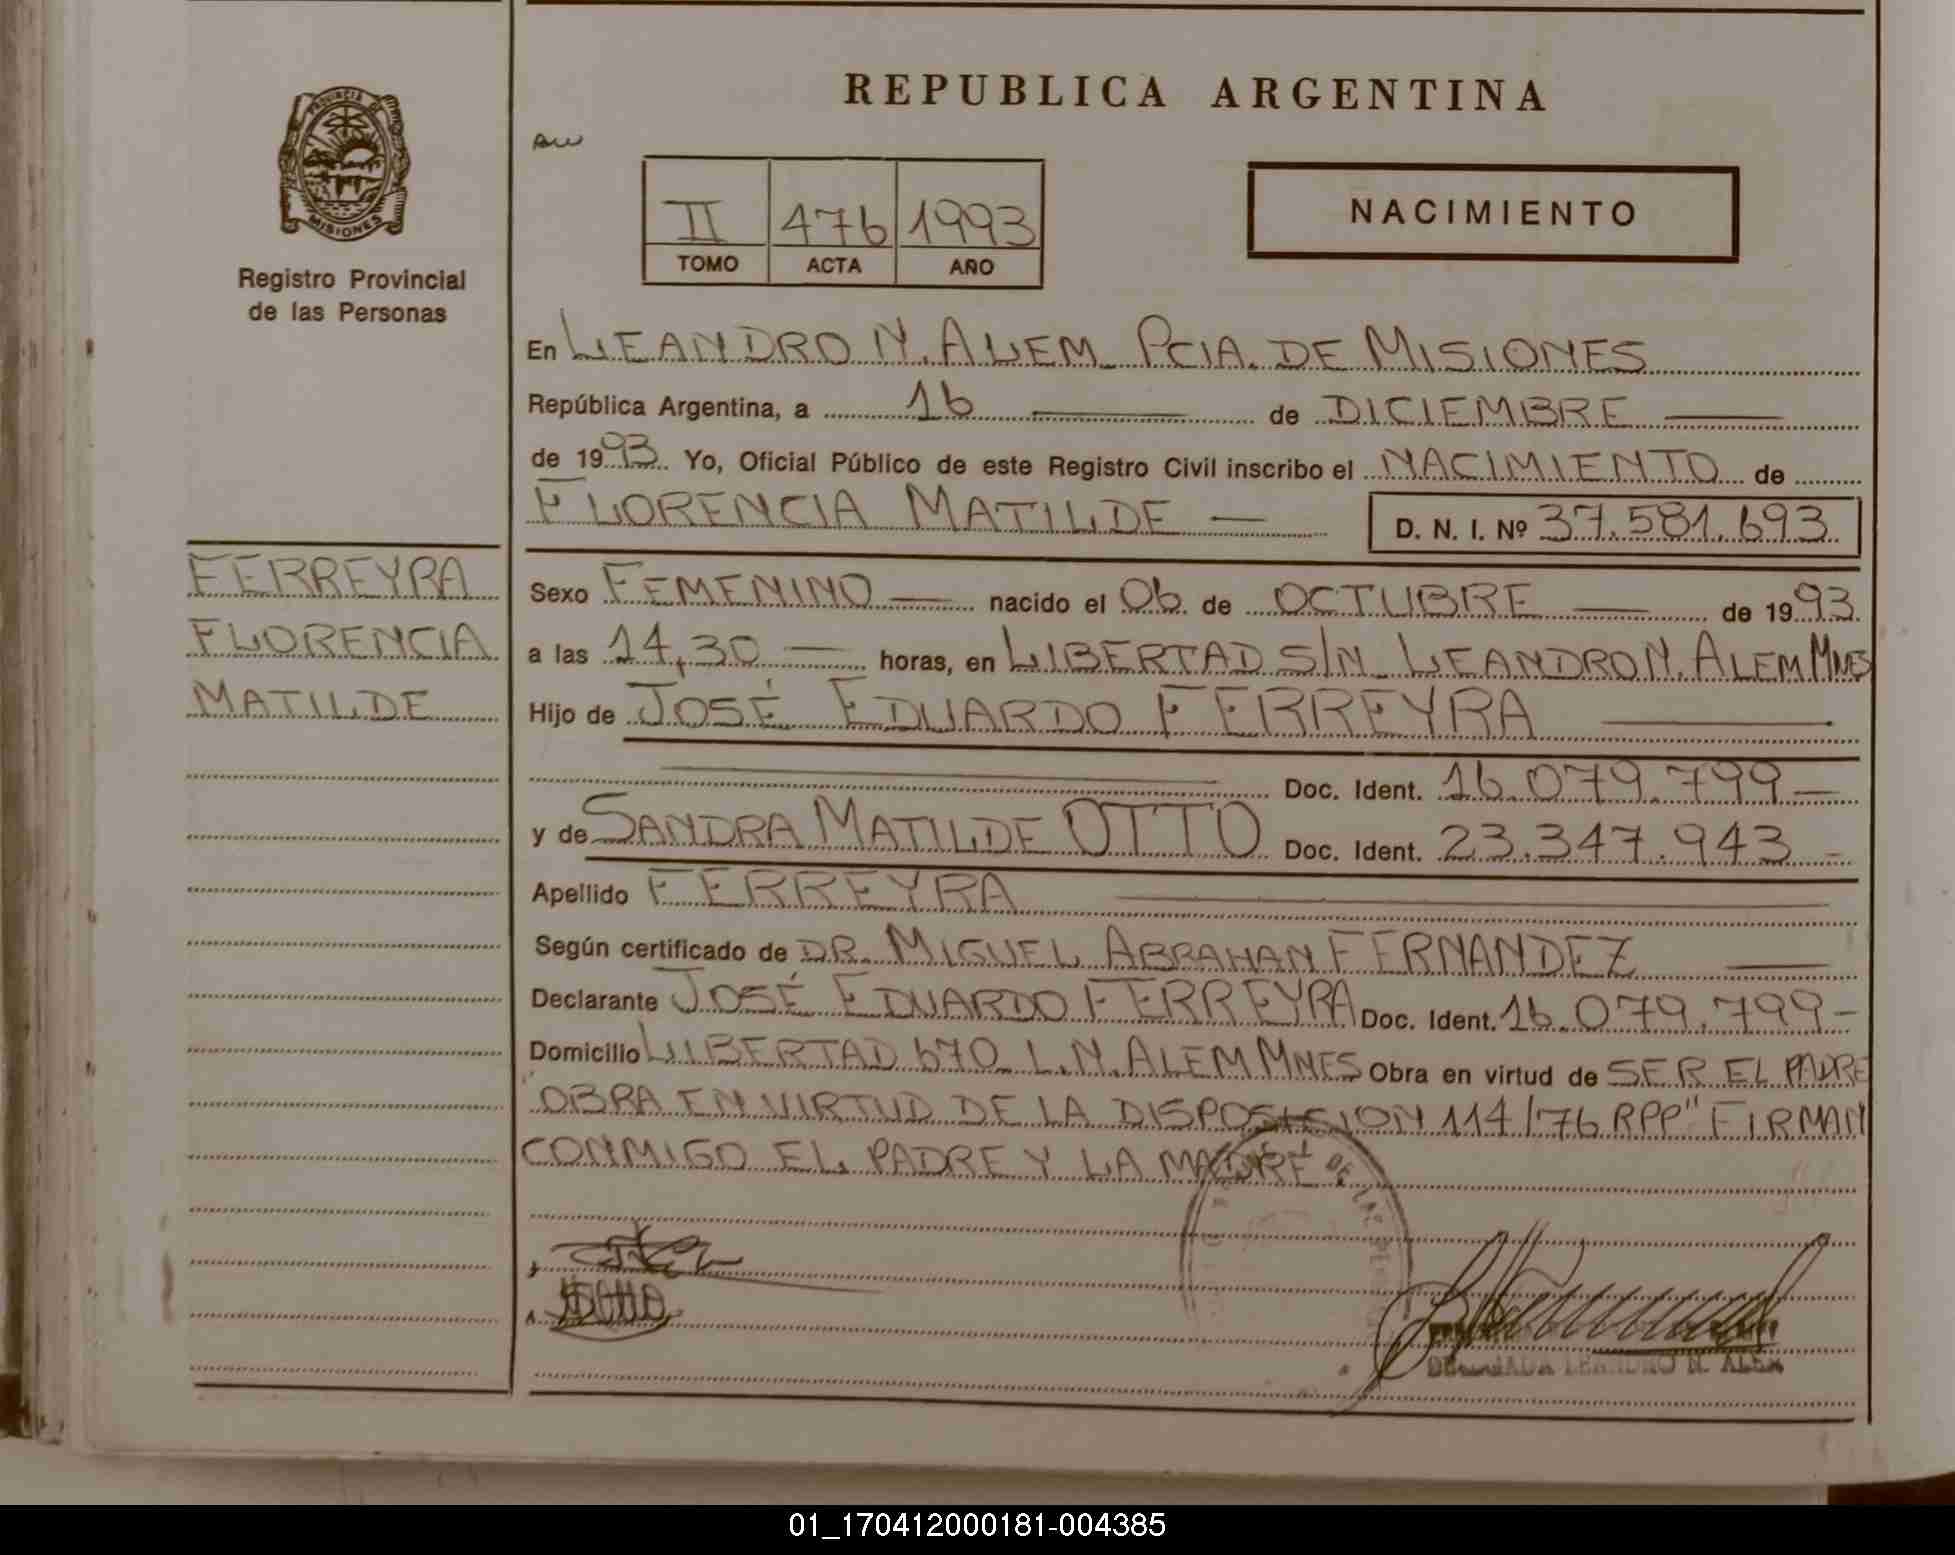 PROVINCIA DE
MISIONES
Registro Provincial
de las Personas
FERREYRA
FLORENCIA
MATILDE
REPUBLICA ARGENTINA
II 476 1993
TOMO ACTA AÑO
NACIMIENTO
En LEANDRO N. ALEM PCIA. DE MISIONES
República Argentina, a 16 de DICIEMBRE
de 1993. Yo, Oficial Público de este Registro Civil inscribo el NACIMIENTO de
FLORENCIA MATILDE — D. N. I. Nº 37.581.693
Sexo FEMENINO — nacido el 06 de OCTUBRE — de 1993
a las 14,30 — horas, en LIBERTAD S/N LEANDRO N. ALEM MNES
Hijo de JOSÉ EDUARDO FERREYRA
Doc. Ident. 16.079.799 —
y de SANDRA MATILDE OTTO Doc. Ident. 23.347.943 -
Apellido FERREYRA
Según certificado de DR. MIGUEL ABRAHAN FERNANDEZ —
Declarante JOSÉ EDUARDO FERREYRA Doc. Ident. 16.079.799-
Domicilio LIBERTAD 670 L.N. ALEM MNES Obra en virtud de SER EL PADRE
"OBRA EN VIRTUD DE LA DISPOSICION 114/76 RPP" FIRMAN
CONMIGO EL PADRE Y LA MADRE.
LEANDRO N. ALEM
01_170412000181-004385